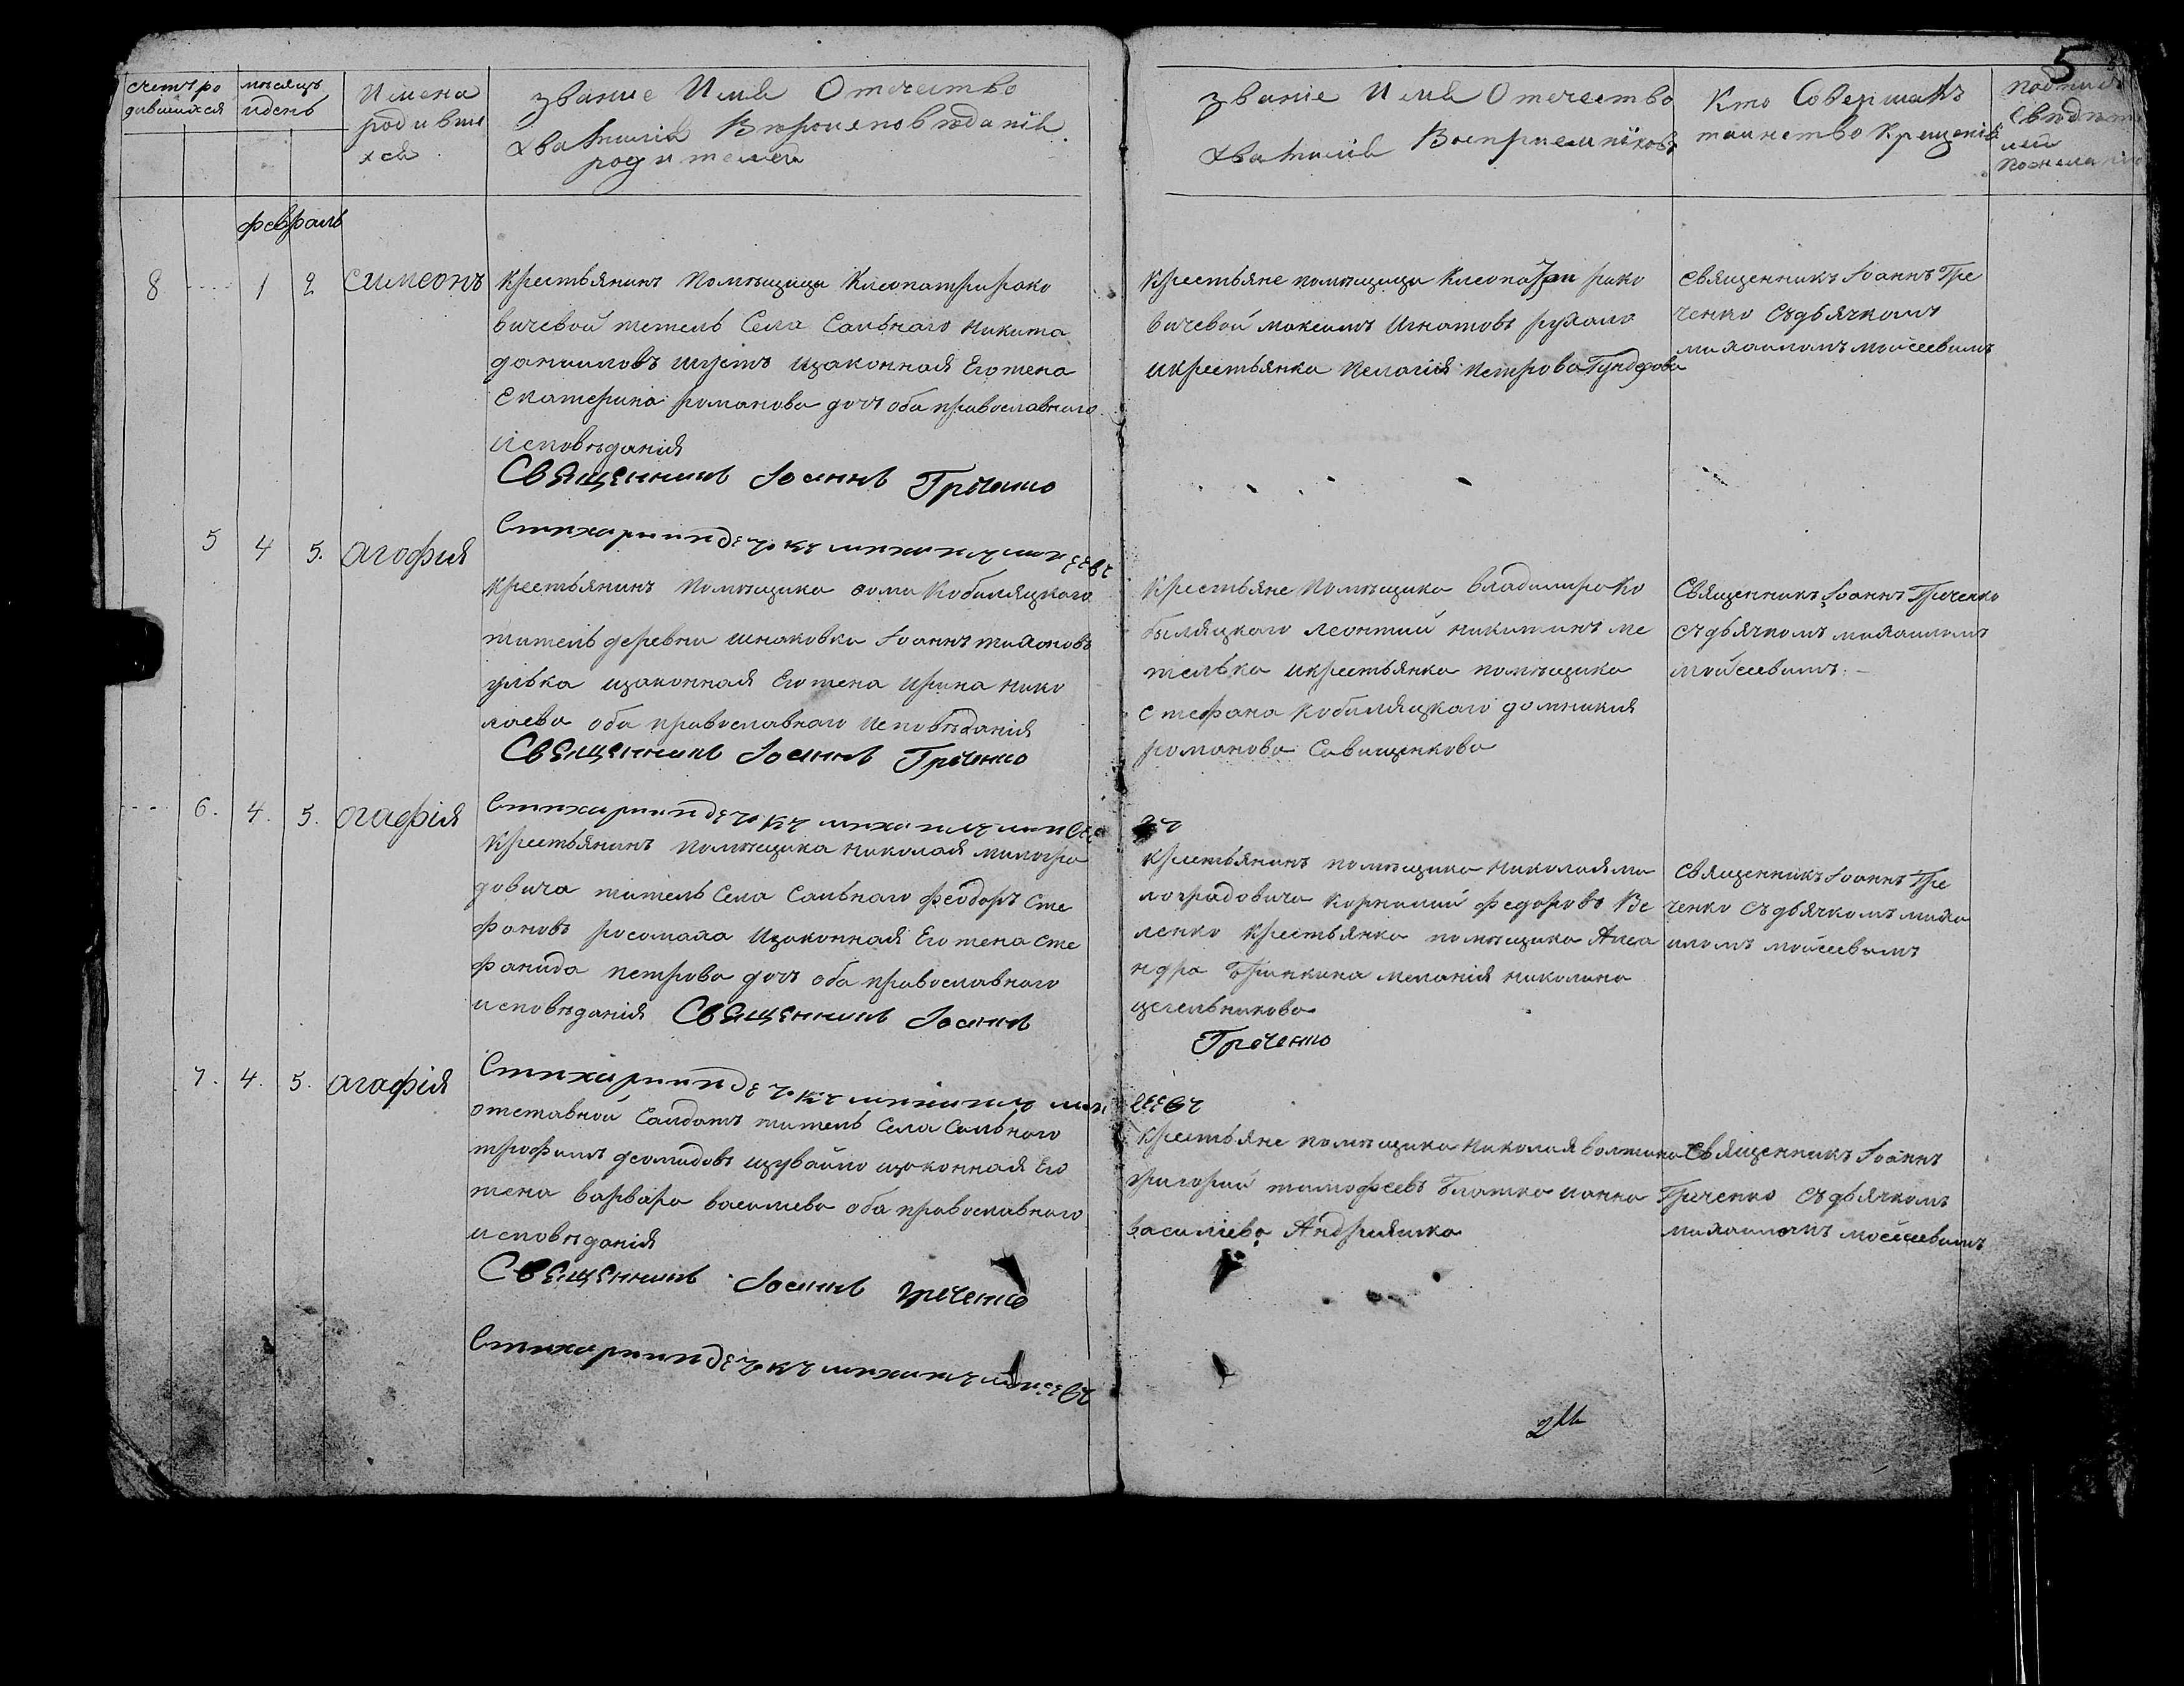 5
счетъ ро
дившихся
мѣсяцъ
и день
Имена
родивши
хся
Звание Имя Отчество
хвамилія Вѣроисповѣданія
родителей
Званіе Имя Отечество
хвамилія Восприемников
Кто Совершалъ
таинство Крещенія
февраль
8 1 2 Симеонъ
Крестьянинъ помѣщицы Клеопатри рако
вичевой житель Села Сальнаго Никита
даниловъ шустъ изаконная Его жена
Екатерина романова дочь оба православнаго
исповѣданія
Священникъ Іоаннъ Греченко
Стихарний дечокъ михаилъ моисеевъ
Крестьяне помѣщици Клеопатри рако
вичевой максимъ Игнатовъ рухало
икрестьянка Пелагія Петрова Гундерова
Священникъ Іоаннъ Гре
ченко Съдьячкомъ
михаиломъ мойсеевимъ
5 4 5. агафия
Крестьянинъ Помѣщика Фоми Кобиляцкого
житель деревни шнаковки Іоаннъ тихоновъ
гулька изаконная Его жена Ирина нико
лаева оба православнаго Исповѣданія
Священникъ Іоаннъ Греченко
Стихарний дечокъ михаилъ моисеевъ
Крестьяне Помѣщика владимира Ко
быляцкаго леонтий никитинъ ме
телька икрестьянка помѣщика
стефана кобиляцкаго домникия
романова Савищенкова
Священникъ Іоаннъ Греченко
съдьячкомъ михаиломъ
мойсеевимъ
6. 4. 5. агафія
Крестьянинъ помѣщика николая милора
довича житель Села Сальнаго феодоръ Сте
фановъ росомаха Изаконная Его жена сте
фанида петрова дочь оба православнаго
исповѣданія Священникъ Іоаннъ
Греченко
Стихарний дечокъ михаилъ моисеевъ
Крестьянинъ помѣщика николая ми
лорадовича Корнилий федоровъ Ве
ленко крестьянка помѣщика Алеа
ндра меланія николина
цегельникова
Священникъ Іоаннъ Гре
ченко съдьячкомъ миха
иломъ мойсеевымъ
7. 4. 5. агафія
отставной Салдатъ житель Села Сальнаго
трофимъ деомидовъ щувайло изаконная Его
жена варвара василиева оба православнаго
исповѣданія
Священникъ Іоаннъ Греченко
Стихарний дечокъ михаилъ моисеевъ
Крестьяне помѣщика николая
григорий тимофеевъ Блатко ианна
василіева Андрияшка
Священникъ Іоаннъ
Греченко съдьячкомъ
михаиломъ мойсеевимъ